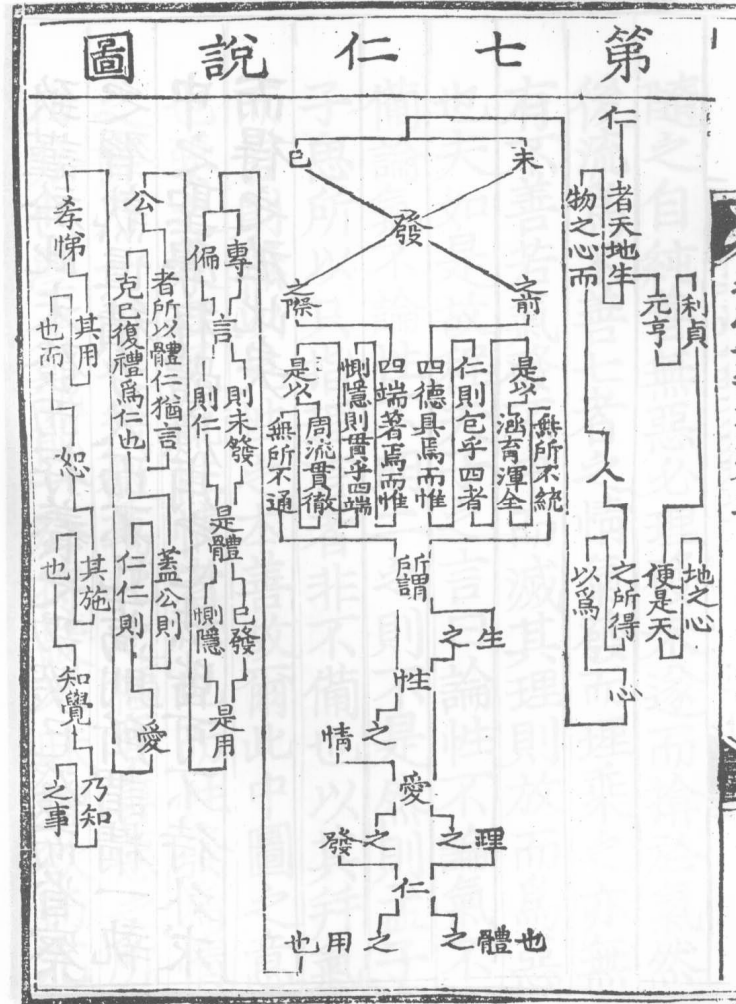 第七仁說圖
仁
者天地生
物之心而
人
之所得
以爲
心
利貞
元亨
地之心
便是天
未
已
發
之前
之際
是以
無所不統
涵育渾全
仁則包乎四者
四德具焉而惟
四端著焉而惟
惻隱則貫乎四端
是以
周流貫徹
無所不通
所謂
生之
性
之情
愛
之理
之發
仁
之體也
之用也
專
偏
言
則未發
則仁
是體
已發
惻隱
是用
公
者所以體仁猶言
克己復禮爲仁也
蓋公則
仁仁則
愛
孝悌
其用
也而
恕
其施
也
知覺
乃知
之事